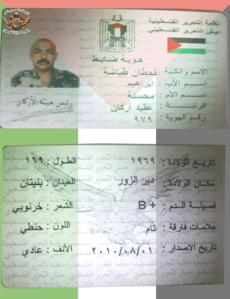 منظمة التحرير الفلسطينية
جيش التحرير الفلسطيني
هوية ضابط
الاسم والكنية : قحطان طباشة
اسم الأب : ابراهيم
اسم الأم : محسنة
الرتبة : عقيد أركان
رقم الهوية : ٩٧٩
رئيس هيئة الأركان
تاريخ الولادة : ١٩٦٩
الطول : ١٦٩
مكان الولادة : دير الزور
العينان : بنيتان
فصيلة الدم : B+
الشعر : خرنوبي
علامات فارقة : تام
اللون : حنطي
تاريخ الاصدار : ٢٠١٠/٠٨/٠١
الأنف : عادي